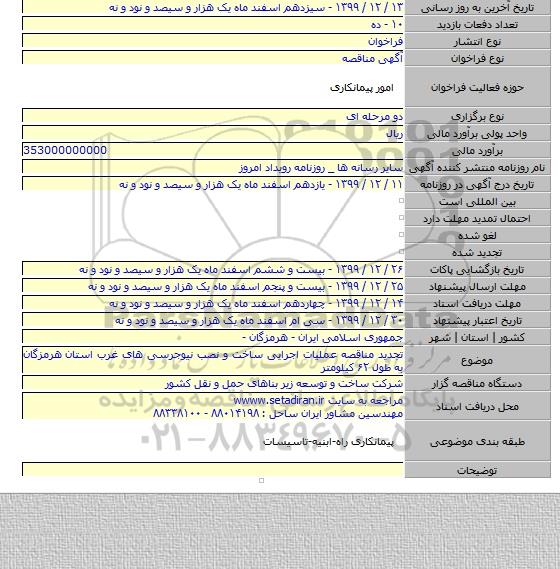 تاریخ آخرین به روز رسانی ۱۳ / ۱۲ / ۱۳۹۹ - سیزدهم اسفند ماه یک هزار و سیصد و نود و نه
تعداد دفعات بازدید ۱۰ - ده
نوع انتشار فراخوان
نوع فراخوان آگهی مناقصه
حوزه فعالیت فراخوان امور پیمانکاری
نوع برگزاری دو مرحله ای
واحد پولی برآورد مالی ریال
برآورد مالی 353000000000
نام روزنامه منتشر کننده آگهی سایر رسانه ها _ روزنامه رویداد امروز
تاریخ درج آگهی در روزنامه ۱۱ / ۱۲ / ۱۳۹۹ - یازدهم اسفند ماه یک هزار و سیصد و نود و نه
بین المللی است
احتمال تمدید مهلت دارد
لغو شده
تجدید شده
تاریخ بازگشایی پاکات ۲۶ / ۱۲ / ۱۳۹۹ - بیست و ششم اسفند ماه یک هزار و سیصد و نود و نه
مهلت ارسال پیشنهاد ۲۵ / ۱۲ / ۱۳۹۹ - بیست و پنجم اسفند ماه یک هزار و سیصد و نود و نه
مهلت دریافت اسناد ۱۴ / ۱۲ / ۱۳۹۹ - چهاردهم اسفند ماه یک هزار و سیصد و نود و نه
تاریخ اعتبار پیشنهاد ۳۰ / ۱۲ / ۱۳۹۹ - سی ام اسفند ماه یک هزار و سیصد و نود و نه
کشور | استان | شهر جمهوری اسلامی ایران - هرمزگان -
موضوع تجدید مناقصه عملیات اجرایی ساخت و نصب نیوجرسی های غرب استان هرمزگان
به طول ۶۲ کیلومتر
دستگاه مناقصه گزار شرکت ساخت و توسعه زیر بناهای حمل و نقل کشور
محل دریافت اسناد مراجعه به سایت www.setadiran.ir
مهندسین مشاور ایران ساحل : ۸۸۰۱۴۱۹۸ - ۸۸۳۳۸۱۰۰
طبقه بندی موضوعی پیمانکاری راه-ابنیه-تاسیسات
توضیحات
۰۲۱-۸۸۳۴۹۶۷۰-۵